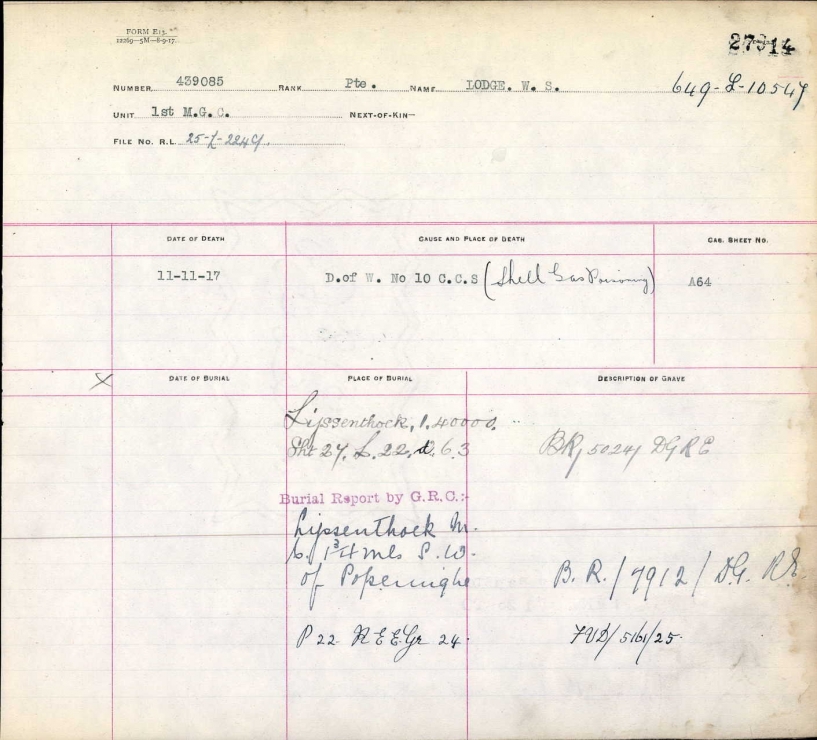 FORM E13.
12269—5M—8-9-17.
27914
NUMBER 439085 RANK Pte. NAME LODGE. W. S.
649-L-10547
UNIT 1st M.G.C. NEXT-OF-KIN—
FILE NO. R.L. 25-L-2249
DATE OF DEATH CAUSE AND PLACE OF DEATH CAS. SHEET NO.
11-11-17 D.of W. No 10 C.C.S (Shell Gas Poisoning) A64
X DATE OF BURIAL PLACE OF BURIAL DESCRIPTION OF GRAVE
Lijssenthock, 1.40000.
Sht 27. L.22.d.6.3 BR/5024/ DGRE
Burial Report by G.R.C.:-
Lijssenthoek M.
C. 1 3/4 mls S.W.
of Poperinghe B.R./7912/D.G.R.E.
P 22 R E E Gr 24. FUD/5161/25.